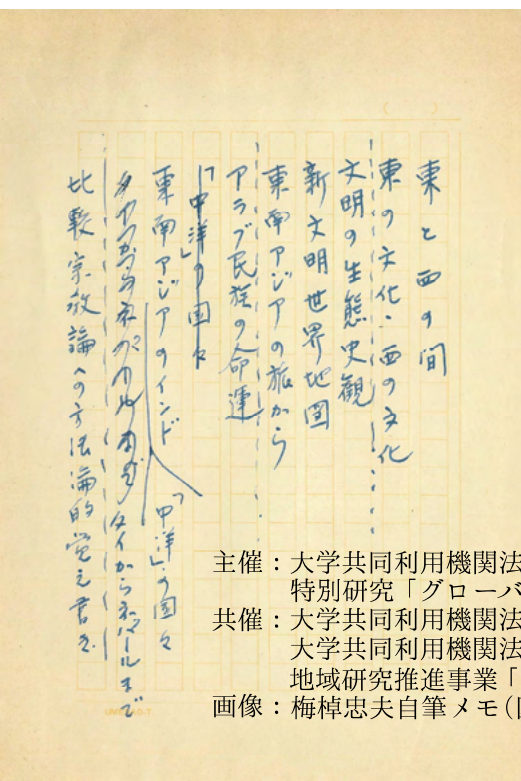 東と西の間
東の文化・西の文化
文明の生態史観
新文明世界地図
東南アジアの旅から
アラブ民族の命運
「中洋」の国々
東南アジアのインド
「中洋」の国々
タイからネパールまで
比較宗教論への方法論的覚え書き
主催：大学共同利用機関法
特別研究「グローバ
共催：大学共同利用機関法
大学共同利用機関法
地域研究推進事業「
画像：梅棹忠夫自筆メモ(